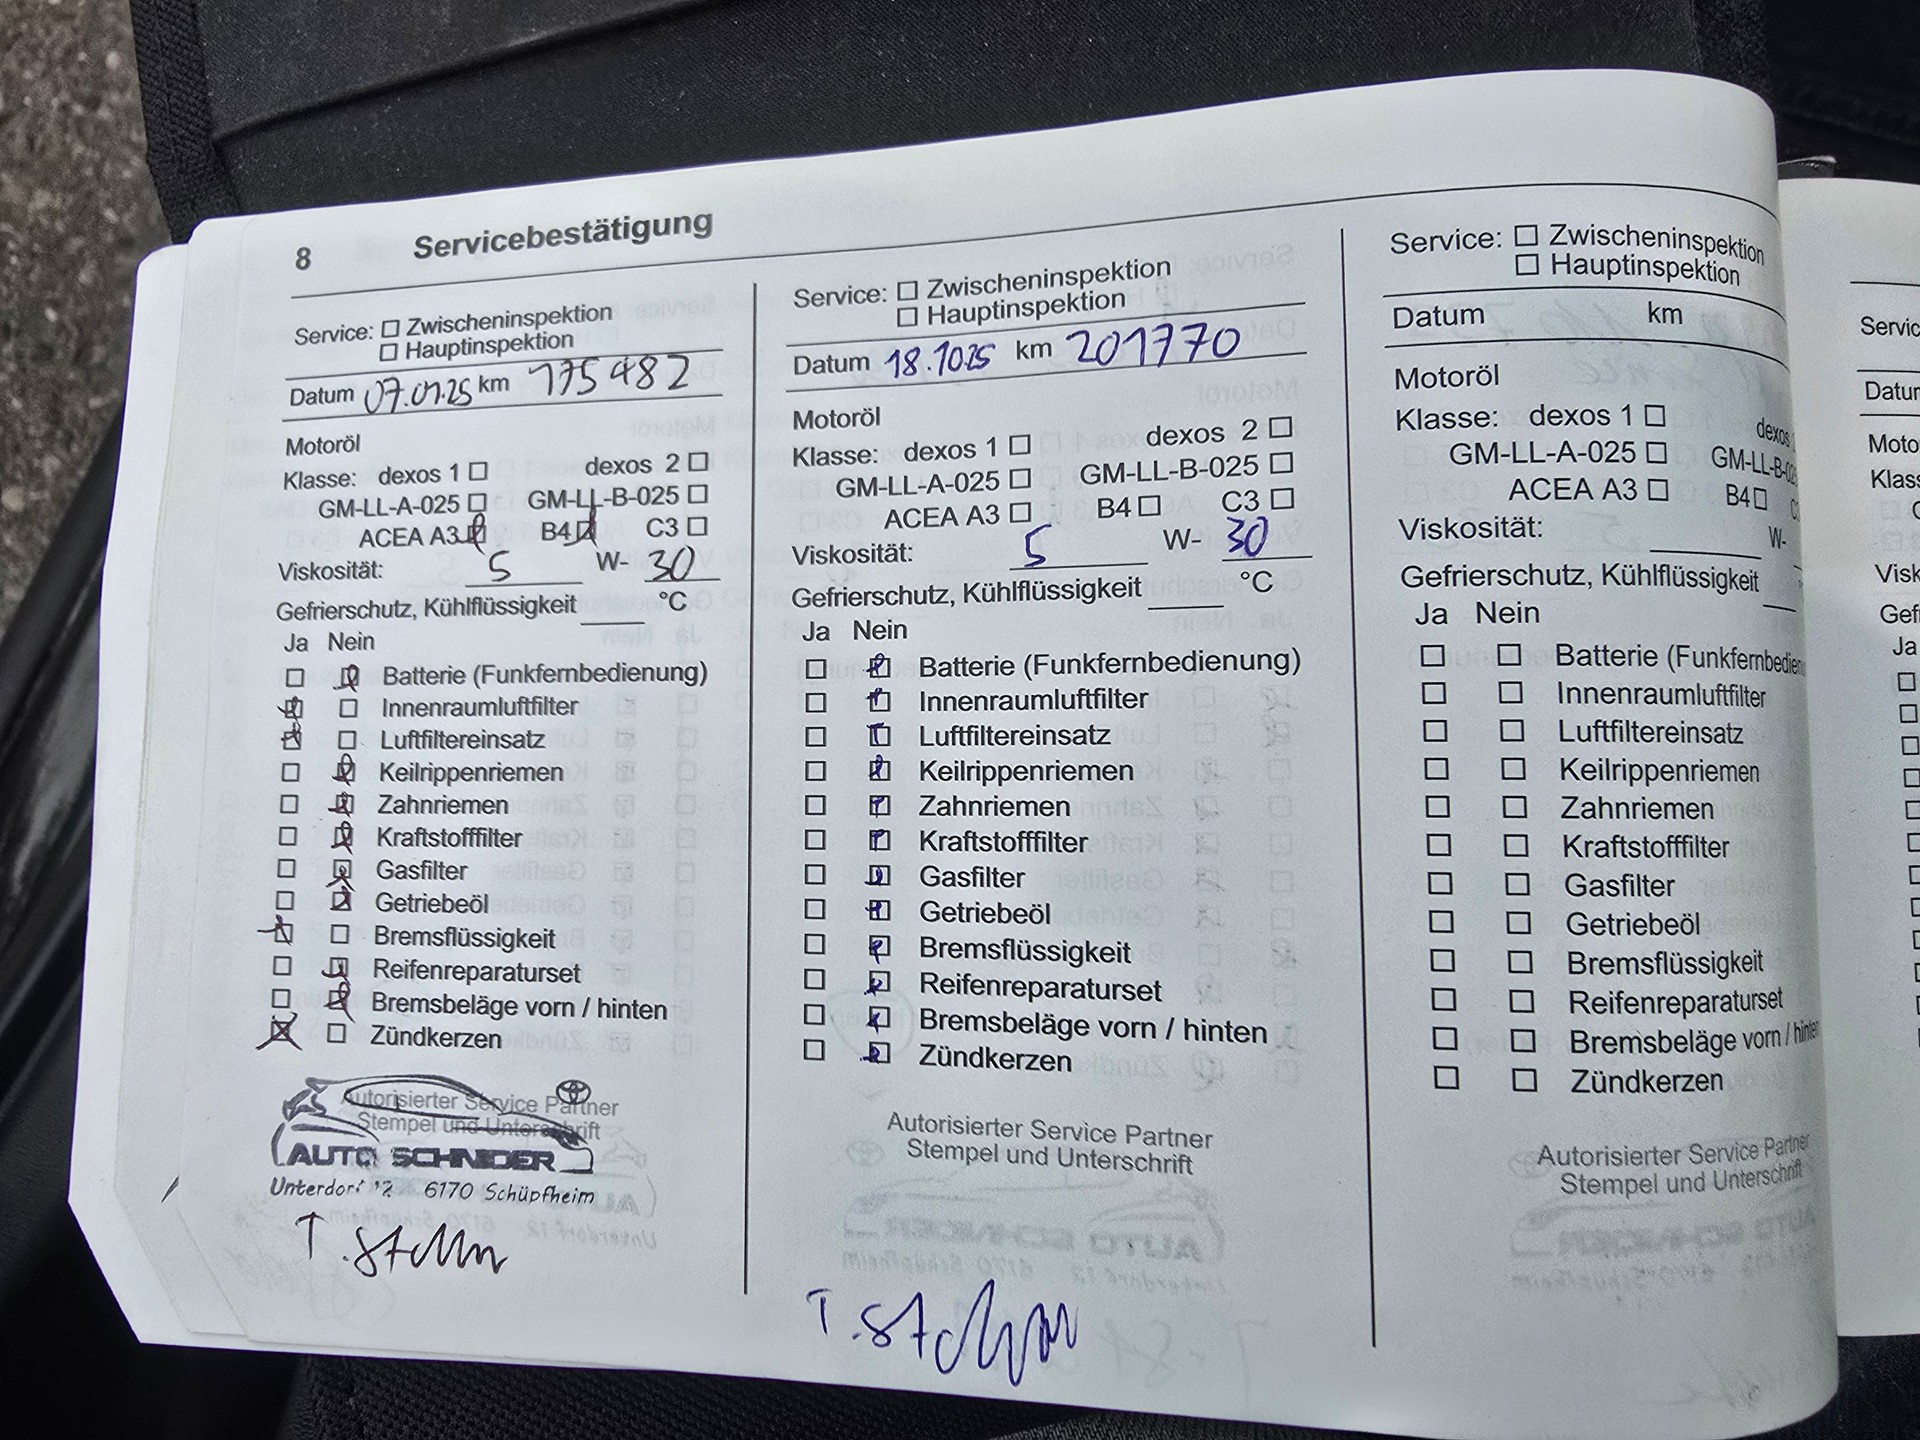 8 Servicebestätigung
Service: ☐ Zwischeninspektion
☐ Hauptinspektion
Datum 07.01.25 km 175482
Motoröl
Klasse: dexos 1 ☐ dexos 2 ☐
GM-LL-A-025 ☐ GM-LL-B-025 ☐
ACEA A3 ☒ B4 ☒ C3 ☐
Viskosität: 5 W- 30
Gefrierschutz, Kühlflüssigkeit ____ °C
Ja Nein
☐ ☒ Batterie (Funkfernbedienung)
☒ ☐ Innenraumluftfilter
☒ ☐ Luftfiltereinsatz
☐ ☒ Keilrippenriemen
☐ ☒ Zahnriemen
☐ ☒ Kraftstofffilter
☐ ☒ Gasfilter
☐ ☒ Getriebeöl
☒ ☐ Bremsflüssigkeit
☐ ☒ Reifenreparaturset
☐ ☒ Bremsbeläge vorn / hinten
☒ ☐ Zündkerzen
Autorisierter Service Partner
Stempel und Unterschrift
AUTO SCHNIDER
Unterdorf 12 6170 Schüpfheim
Service: ☐ Zwischeninspektion
☐ Hauptinspektion
Datum 18.1025 km 201770
Motoröl
Klasse: dexos 1 ☐ dexos 2 ☐
GM-LL-A-025 ☐ GM-LL-B-025 ☐
ACEA A3 ☐ B4 ☐ C3 ☐
Viskosität: 5 W- 30
Gefrierschutz, Kühlflüssigkeit ____ °C
Ja Nein
☐ ☒ Batterie (Funkfernbedienung)
☐ ☒ Innenraumluftfilter
☐ ☒ Luftfiltereinsatz
☐ ☒ Keilrippenriemen
☐ ☒ Zahnriemen
☐ ☒ Kraftstofffilter
☐ ☒ Gasfilter
☐ ☒ Getriebeöl
☐ ☒ Bremsflüssigkeit
☐ ☒ Reifenreparaturset
☐ ☒ Bremsbeläge vorn / hinten
☐ ☒ Zündkerzen
Autorisierter Service Partner
Stempel und Unterschrift
Service: ☐ Zwischeninspektion
☐ Hauptinspektion
Datum km
Motoröl
Klasse: dexos 1 ☐ dexos
GM-LL-A-025 ☐ GM-LL-B-025
ACEA A3 ☐ B4 ☐ C
Viskosität: ____ W-
Gefrierschutz, Kühlflüssigkeit
Ja Nein
☐ ☐ Batterie (Funkfernbedien
☐ ☐ Innenraumluftfilter
☐ ☐ Luftfiltereinsatz
☐ ☐ Keilrippenriemen
☐ ☐ Zahnriemen
☐ ☐ Kraftstofffilter
☐ ☐ Gasfilter
☐ ☐ Getriebeöl
☐ ☐ Bremsflüssigkeit
☐ ☐ Reifenreparaturset
☐ ☐ Bremsbeläge vorn / hinte
☐ ☐ Zündkerzen
Autorisierter Service Partner
Stempel und Unterschrift
Servic
Datur
Moto
Klass
Visk
Gefi
Ja